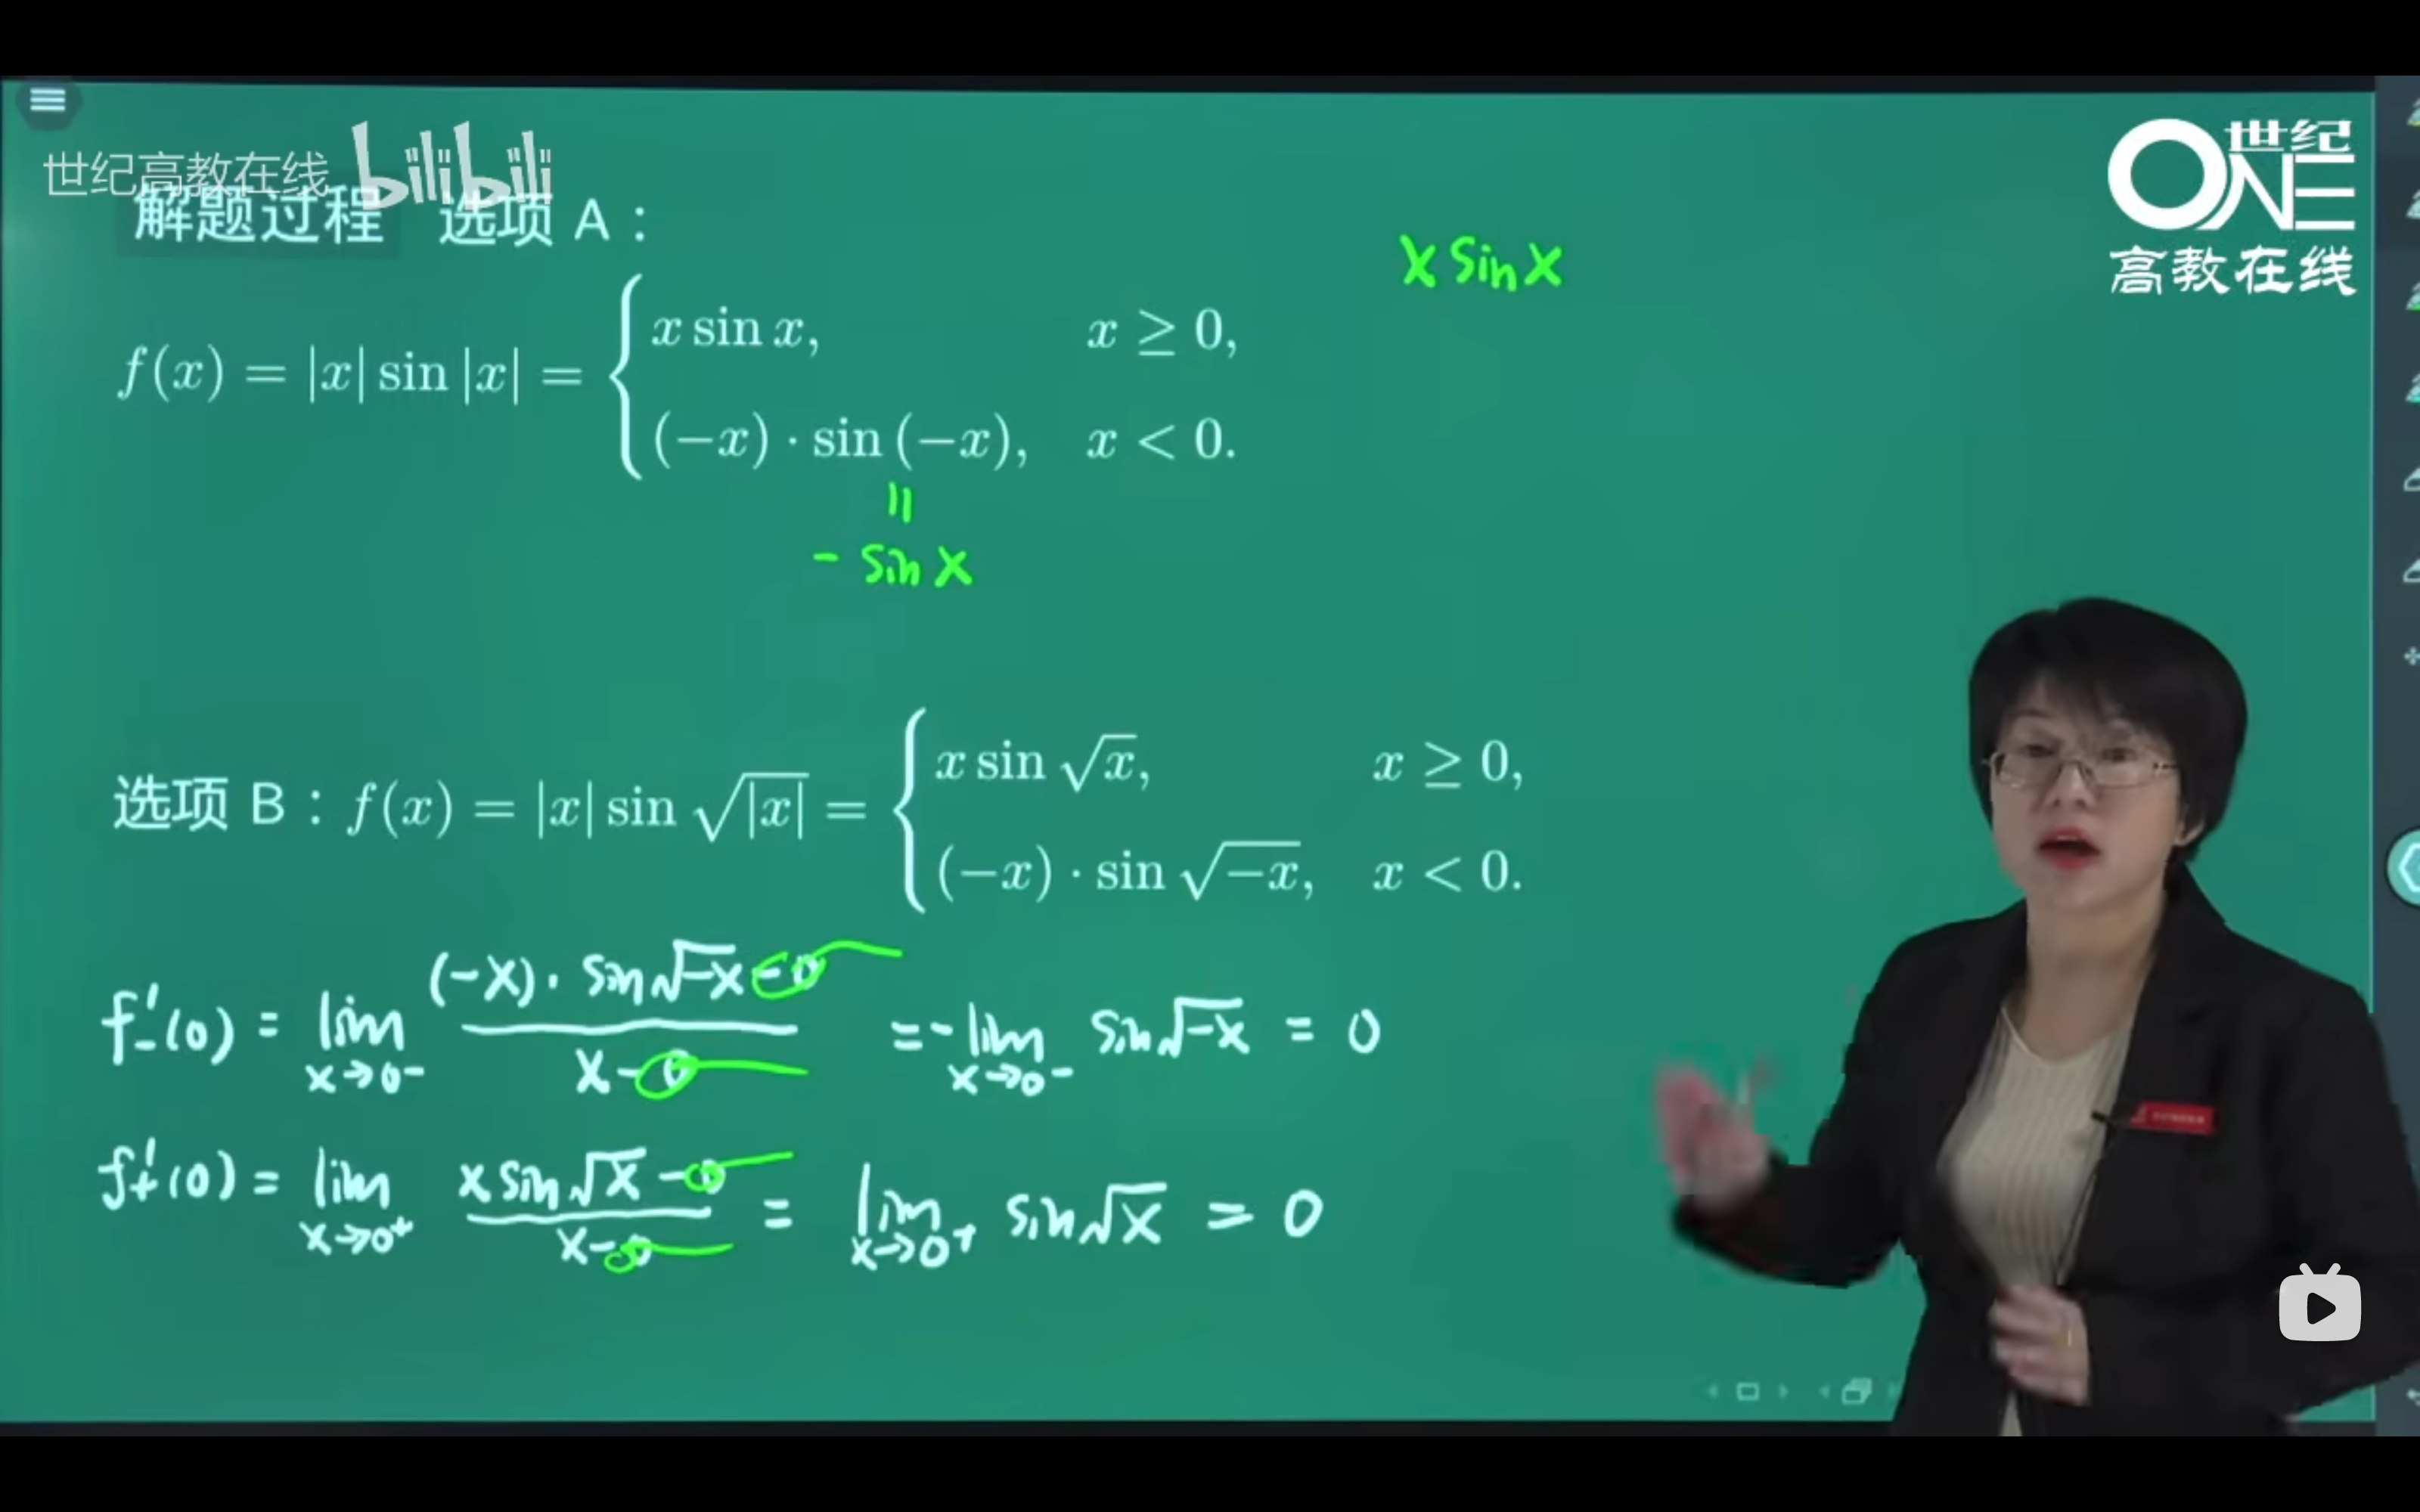 世纪高教在线 bilibili
ONE 世纪
高教在线
解题过程 选项 A：
x sin x
f(x) = |x| sin |x| = { x sin x, x ≥ 0,
(−x) · sin (−x), x < 0.
=
- sin x
选项 B：f(x) = |x| sin √|x| = { x sin √x, x ≥ 0,
(−x) · sin √−x, x < 0.
f′₋(0) = lim x→0- (-x)· sin√-x -0 / x-0 = - lim x→0- sin√-x = 0
f′₊(0) = lim x→0+ x sin√x -0 / x-0 = lim x→0+ sin√x = 0